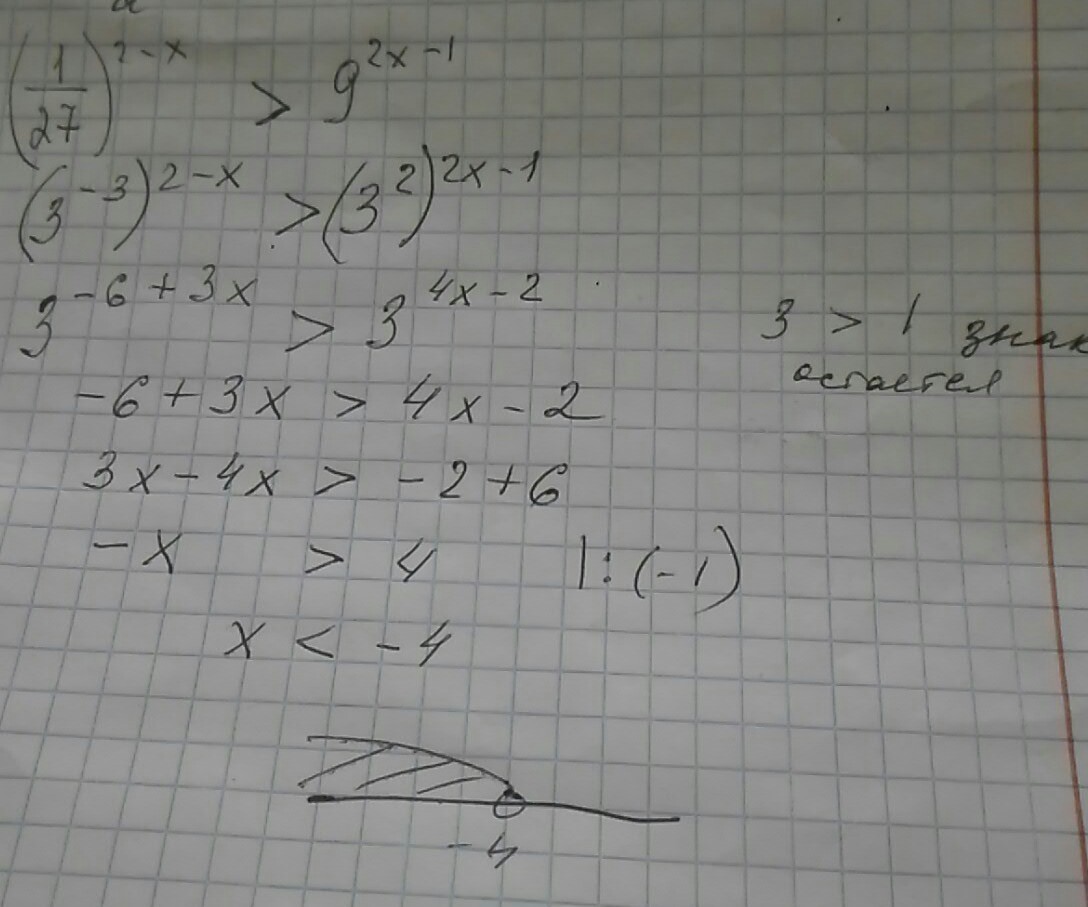 (1/27)^(2-x) > 9^(2x-1)
(3^(-3))^(2-x) > (3^2)^(2x-1)
3^(-6+3x) > 3^(4x-2)
3 > 1 знак
остается
-6+3x > 4x-2
3x-4x > -2+6
-x > 4 |:(-1)
x < -4
-4